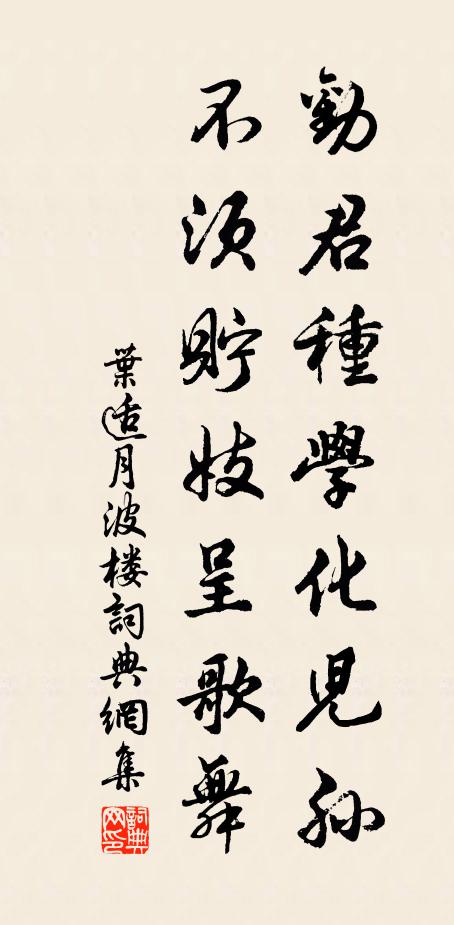 勸君種學化兒孫
不須貯妓呈歌舞
葉适月波楼詞典網集
詞典网印